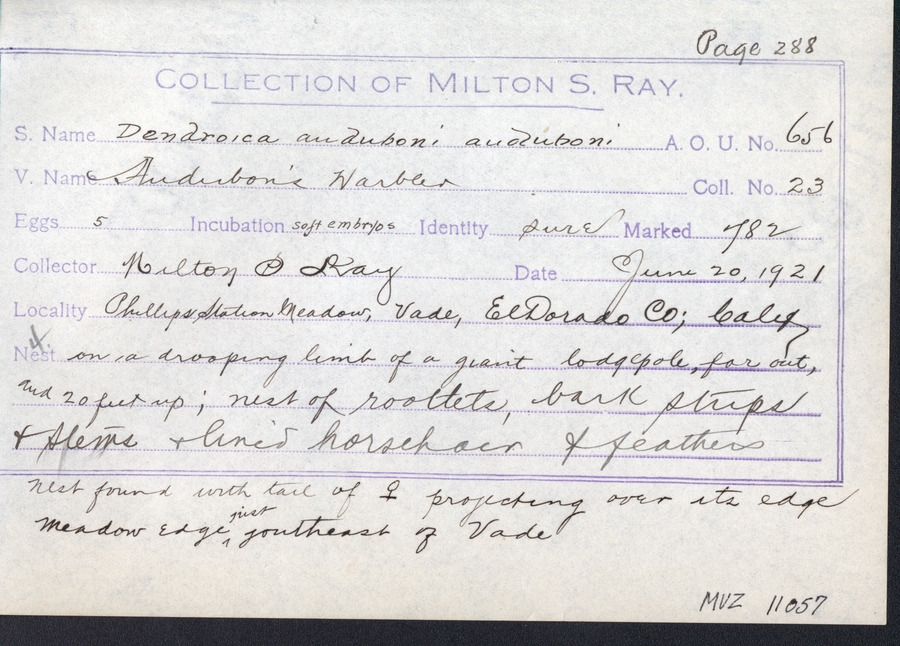 Page 288
COLLECTION OF MILTON S. RAY.
S. Name Dendroica auduboni auduboni A. O. U. No. 656
V. Name Audubon's Warbler Coll. No. 23
Eggs 5 Incubation soft embryos Identity sure Marked 782
Collector Milton S Ray Date June 20, 1921
Locality Phillips Station Meadow, Vade, El Dorado Co; Calif
Nest on a drooping limb of a giant lodgepole, far out,
and 20 feet up; nest of rootlets, bark strips
& stems & lined horsehair & feathers
Nest found with tail of ♀ projecting over its edge
meadow edge just southeast of Vade
MVZ 11057